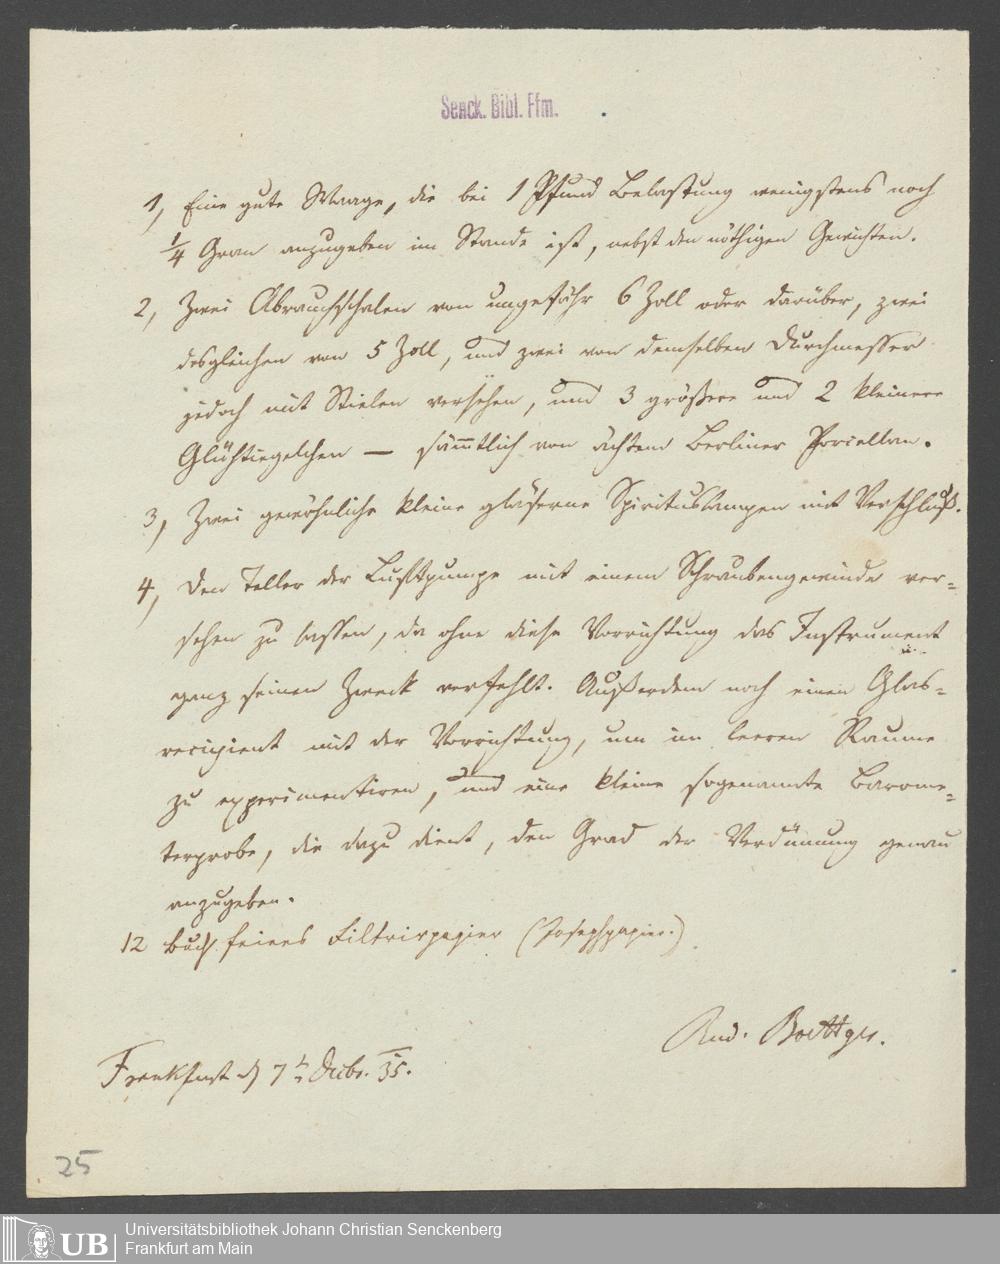 Senck. Bibl. Ffm.
1, Eine gute Waage, die bei 1 Pfund Belastung wenigstens noch
1/4 Gran anzugeben im Stande ist, nebst den nöthigen Gewichten.
2, Zwei Abrauchschalen von ungefähr 6 Zoll oder darüber, zwei
desgleichen von 5 Zoll, und zwei von demselben Durchmesser
jedoch mit Stielen versehen, und 3 größere und 2 kleinere
Glühtiegelchen — sämmtlich von ächtem Berliner Porcellan.
3, Zwei gewöhnliche kleine gläserne Spirituslampen mit Verschluß.
4, Den Teller der Luftpumpe mit einem Schraubengewinde ver=
sehen zu lassen, da ohne diese Vorrichtung das Instrument
ganz seinen Zweck verfehlt. Außerdem noch einen Glas=
recipient mit der Vorrichtung, um im leeren Raume
zu experimentiren, und eine kleine sogenannte Barome=
terprobe, die dazu dient, den Grad der Verdünnung genau
anzugeben.
12 Buch feines Filtrirpapier (Josephpapier.)
Rud. Boettger.
Frankfurt d 7t Decbr. 35.
25
UB
Universitätsbibliothek Johann Christian Senckenberg
Frankfurt am Main